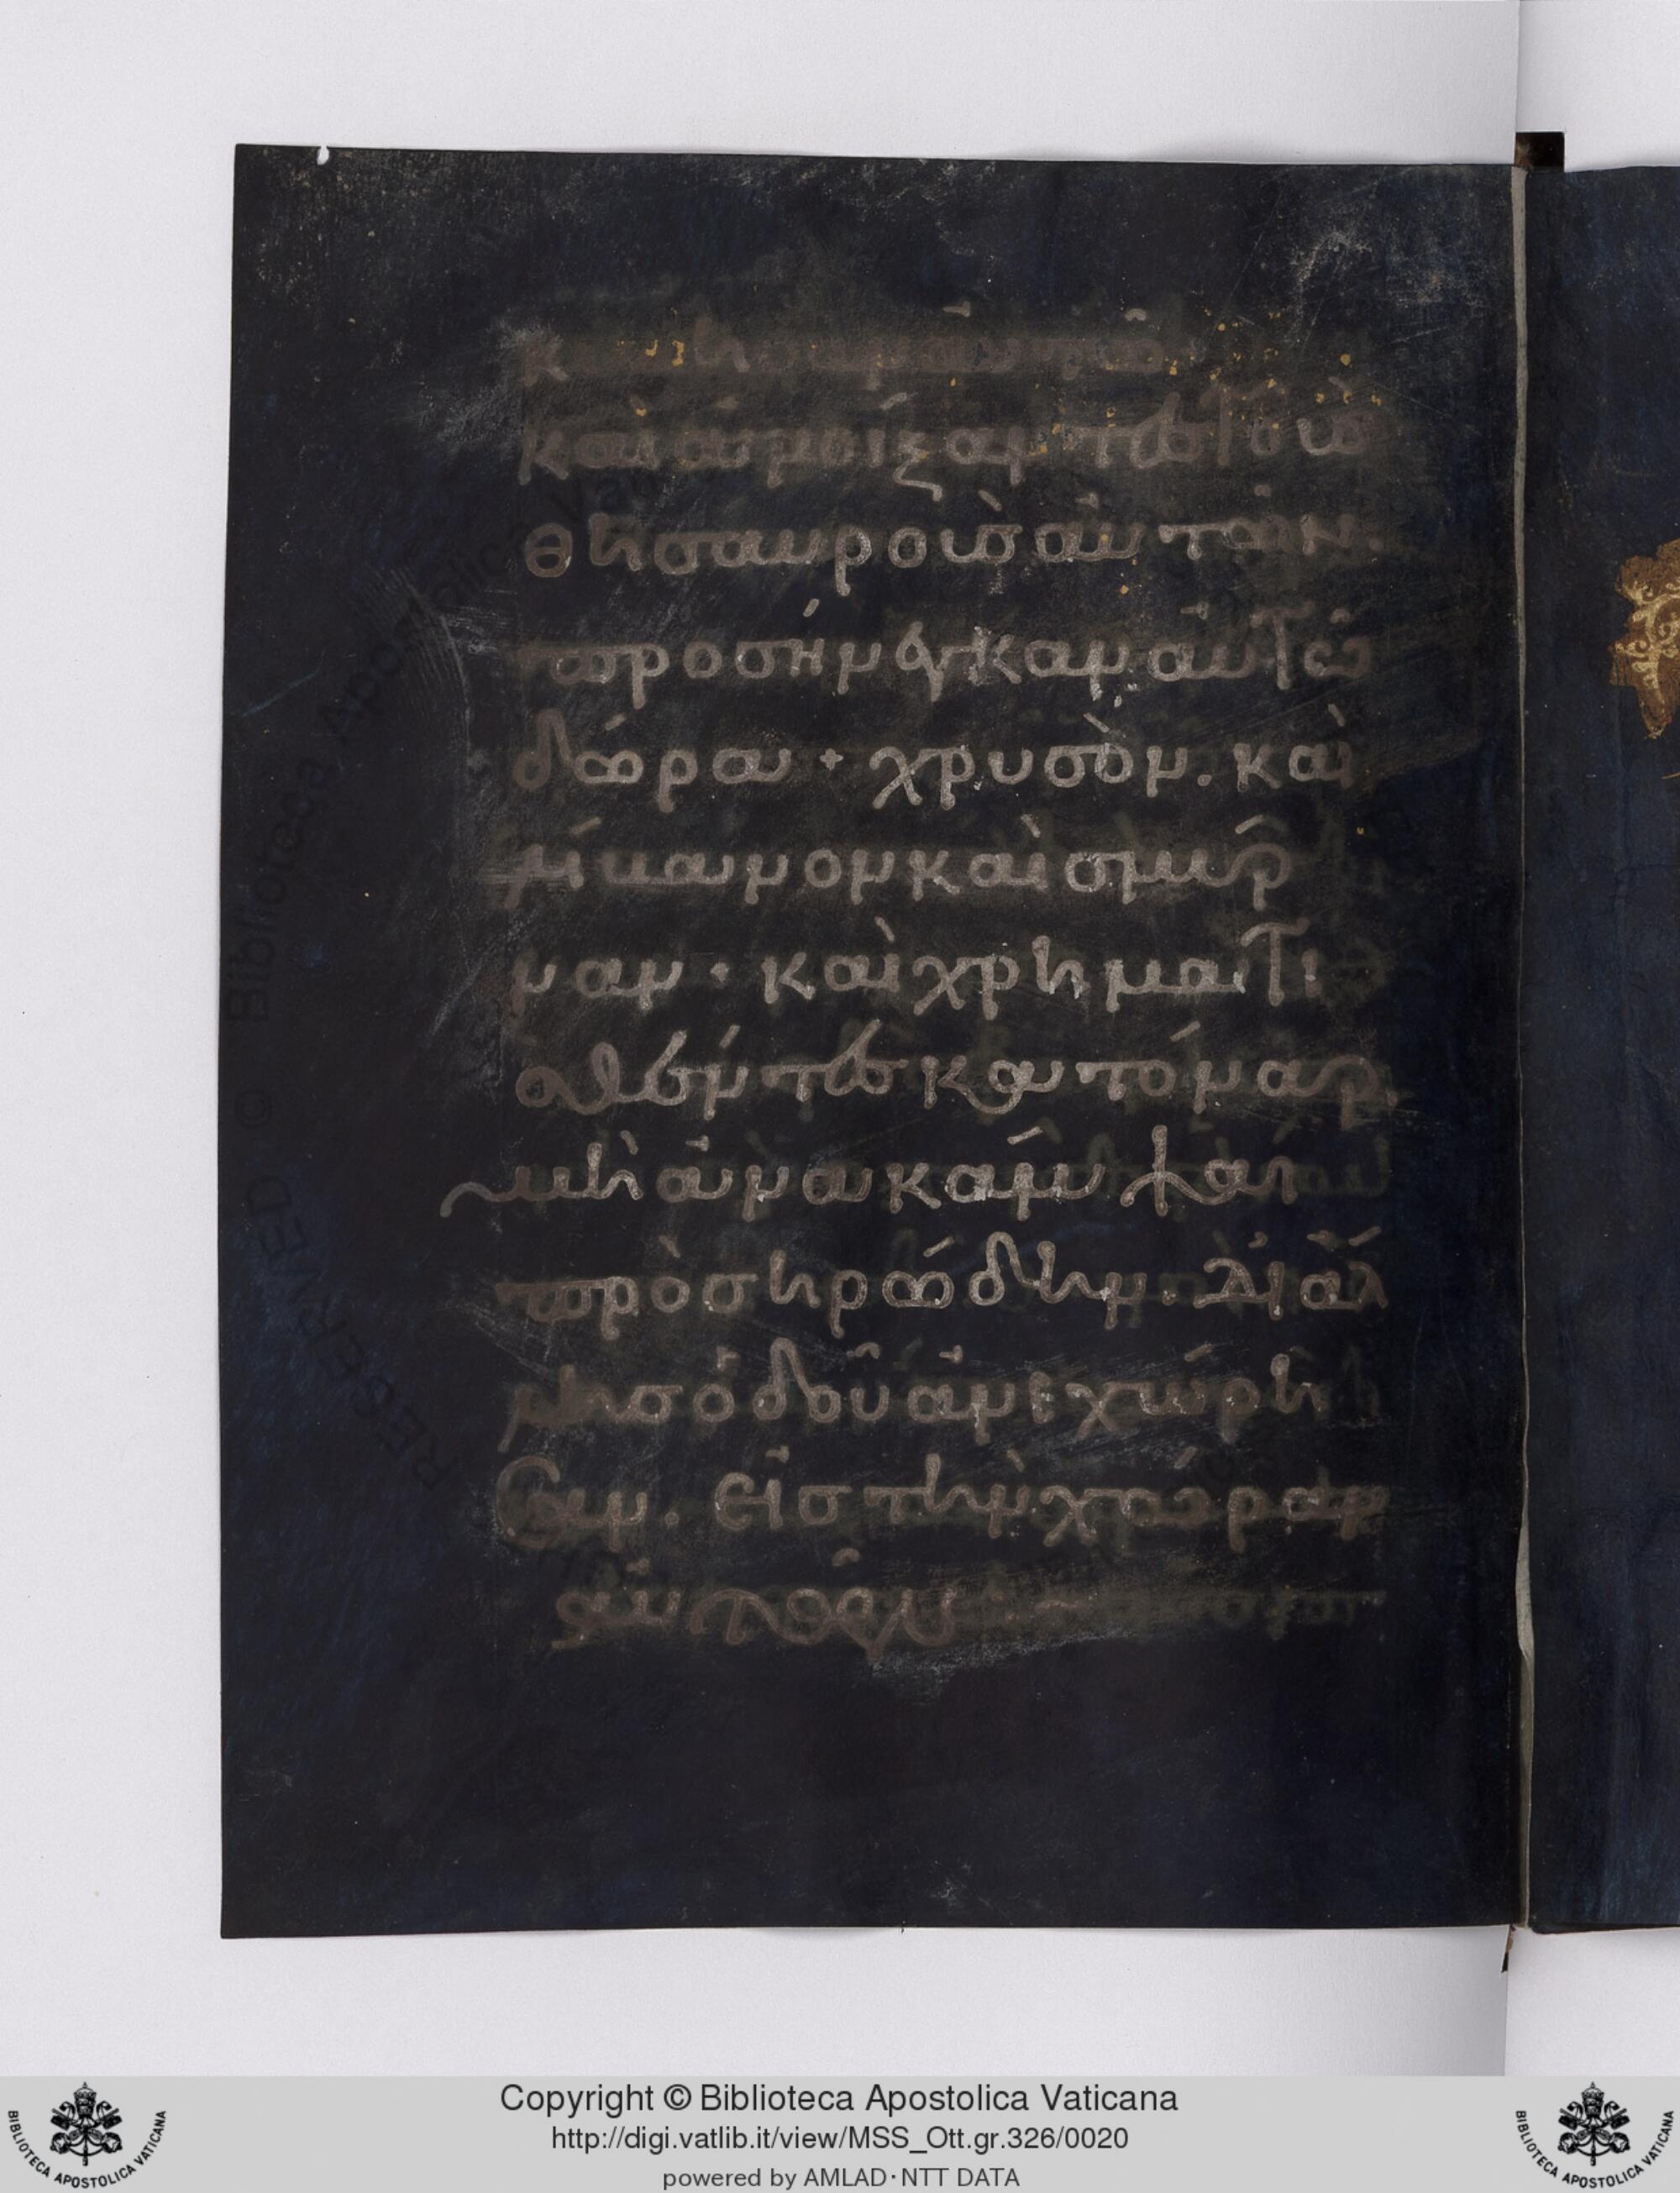 κύνησαν αὐτῶ·
καὶ ἀνοίξαντες τοὺς
θησαυροὺς αὐτῶν.
προσήνεγκαν αὐτῶ
δῶρα + χρυσὸν. καὶ
λίβανον καὶ σμύρ
ναν · καὶ χρηματι
σθέντες κατ' ὄναρ,
μὴ ἀνακάμψαι
πρὸς ἡρώδην. Δι' ἄλ
λης ὁδοῦ ἀνεχώρη
σαν. εἰς τὴν χώραν
αὐτῶν
Copyright © Biblioteca Apostolica Vaticana
http://digi.vatlib.it/view/MSS_Ott.gr.326/0020
powered by AMLAD·NTT DATA
BIBLIOTECA APOSTOLICA VATICANA
BIBLIOTECA APOSTOLICA VATICANA